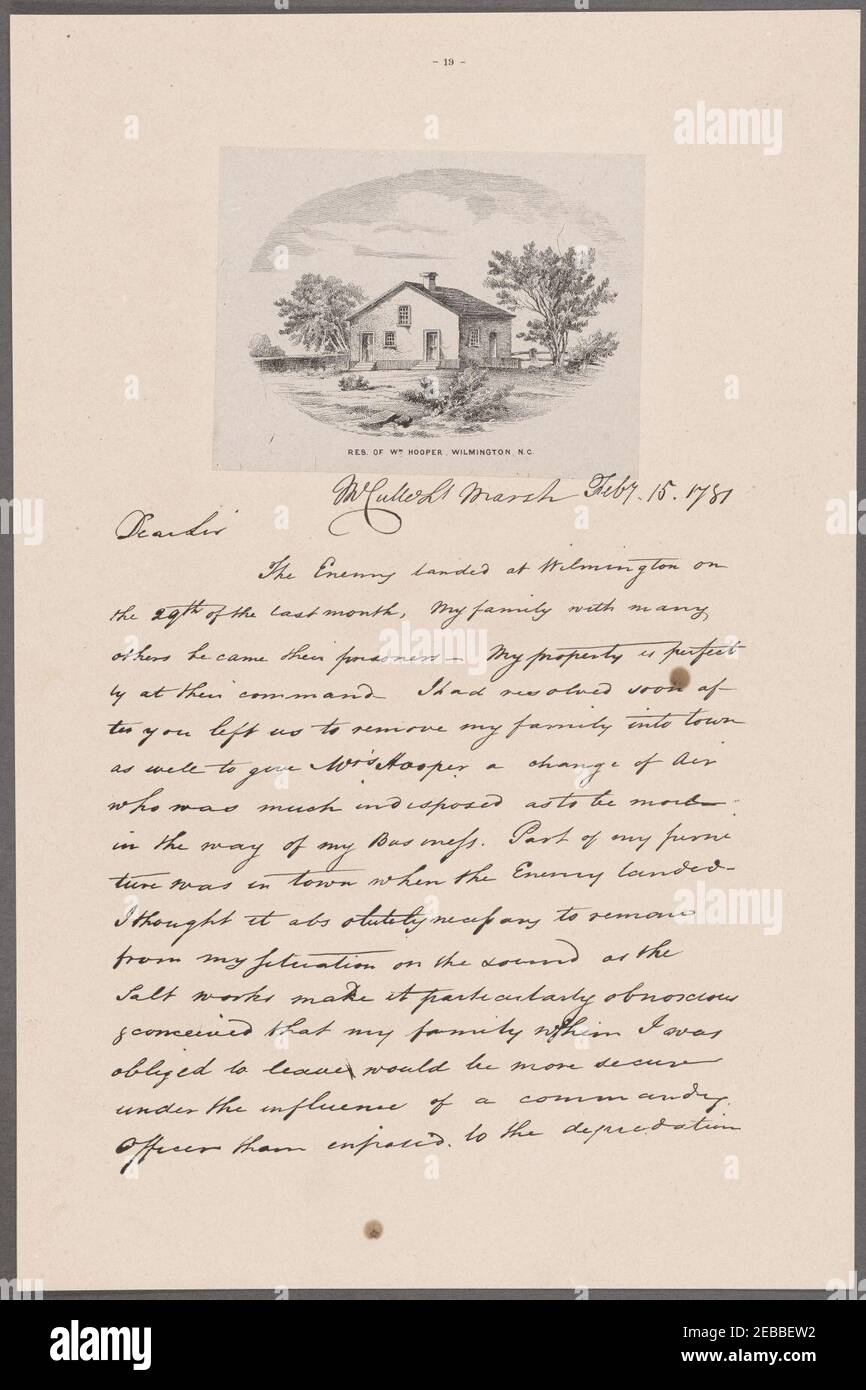 - 19 -
RES. OF Wm HOOPER, WILMINGTON, N.C.
Marsh Feby. 15. 1781
Dear Sir
The Enemy landed at Wilmington on
the 29th of the last month, My family with many
others be came their prisoners — My property is perfect
ly at their command — I had resolved soon af-
ter you left us to remove my family into town
as well to give Mrs Hooper a change of Air
who was much indisposed as to be more
in the way of my Business. Part of my furni
ture was in town when the Enemy landed —
I thought it absolutely necessary to remove
from my situation on the sound as the
Salt works made it particularly obnoxious
& conceived that my family whom I was
obliged to leave would be more secure
under the influence of a commandg
Officer than exposed to the depredation
alamy
alamy
alamy
Image ID: 2EBBEW2
www.alamy.com